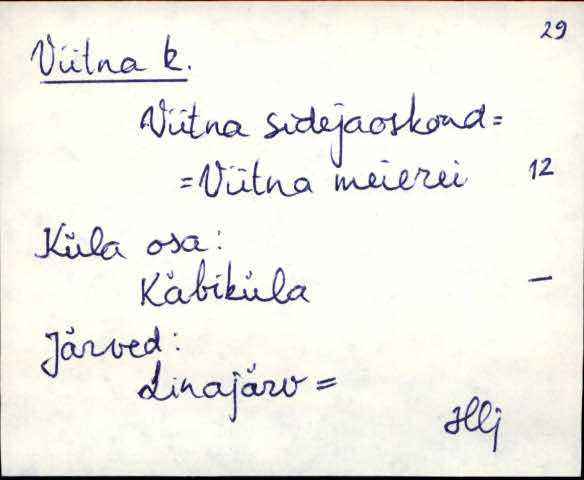 29
Viitna k.
Viitna sidejaoskond =
= Viitna meierei 12
Küla osa:
Käbiküla —
Järved:
Linajärv =
Hlj